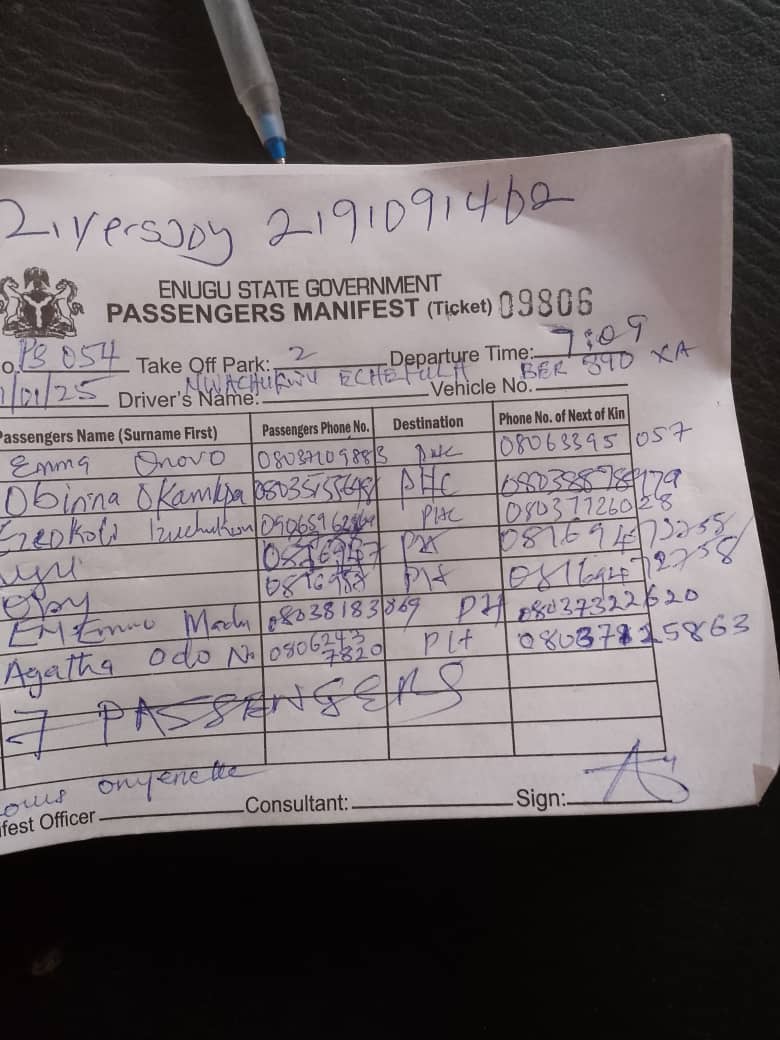 Riversjoy 2191091402
ENUGU STATE GOVERNMENT
PASSENGERS MANIFEST (Ticket) 09806
o. PS 054 Take Off Park: 2 Departure Time: 7:09
1/01/25 Driver's Name: NWACHUKWU ECHEFULA Vehicle No. BER 590 XA
Passengers Name (Surname First) Passengers Phone No. Destination Phone No. of Next of Kin
Emma Onovo 08037209883 PHC 08063395057
Obinna Okamkpa PHC 08038878979
Izuchukwu PHC 08037726028
PH
Oby PH
Emenuo Madu 08038183869 PH 08037322620
Agatha Odo N 08062437820 PH
7 PASSENGERS
onyeneke
ifest Officer Consultant: Sign: